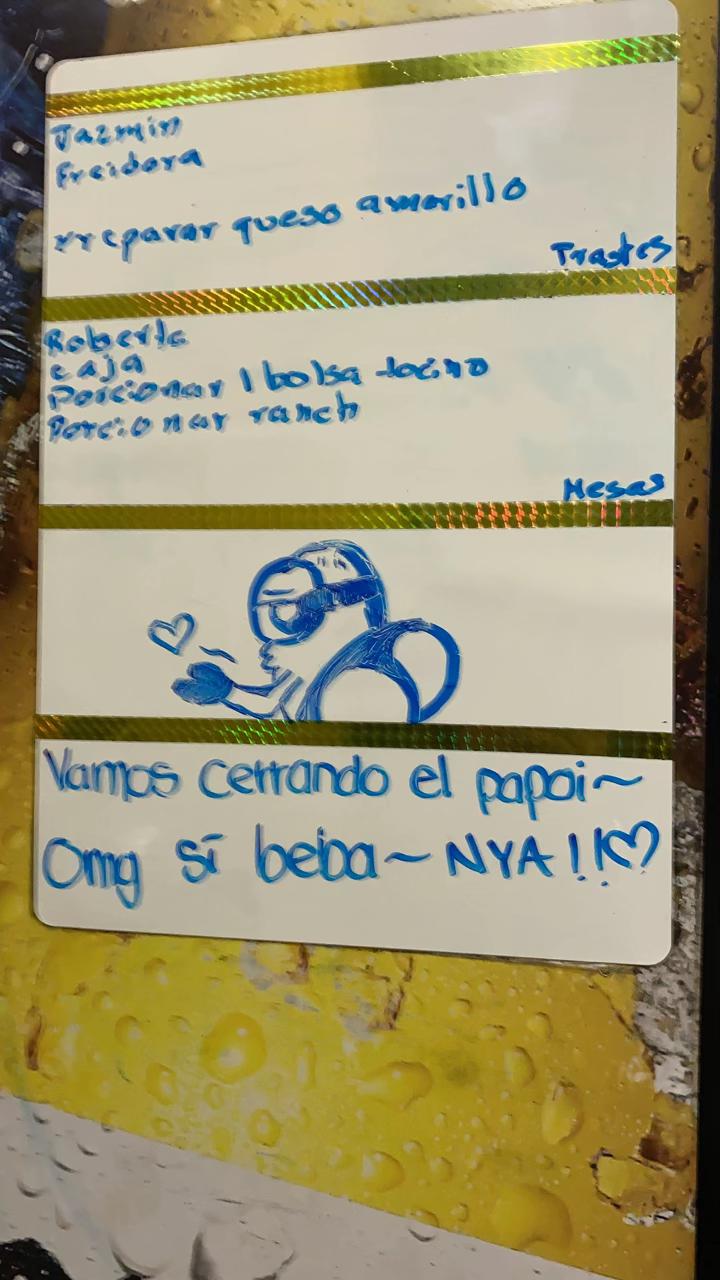 Jazmin
Freidora
Preparar queso amarillo
Trastes
Roberto
caja
Porcionar 1 bolsa tocino
Porcionar ranch
Mesas
Vamos cerrando el papoi~
Omg sí beiba~ NYA!!♡